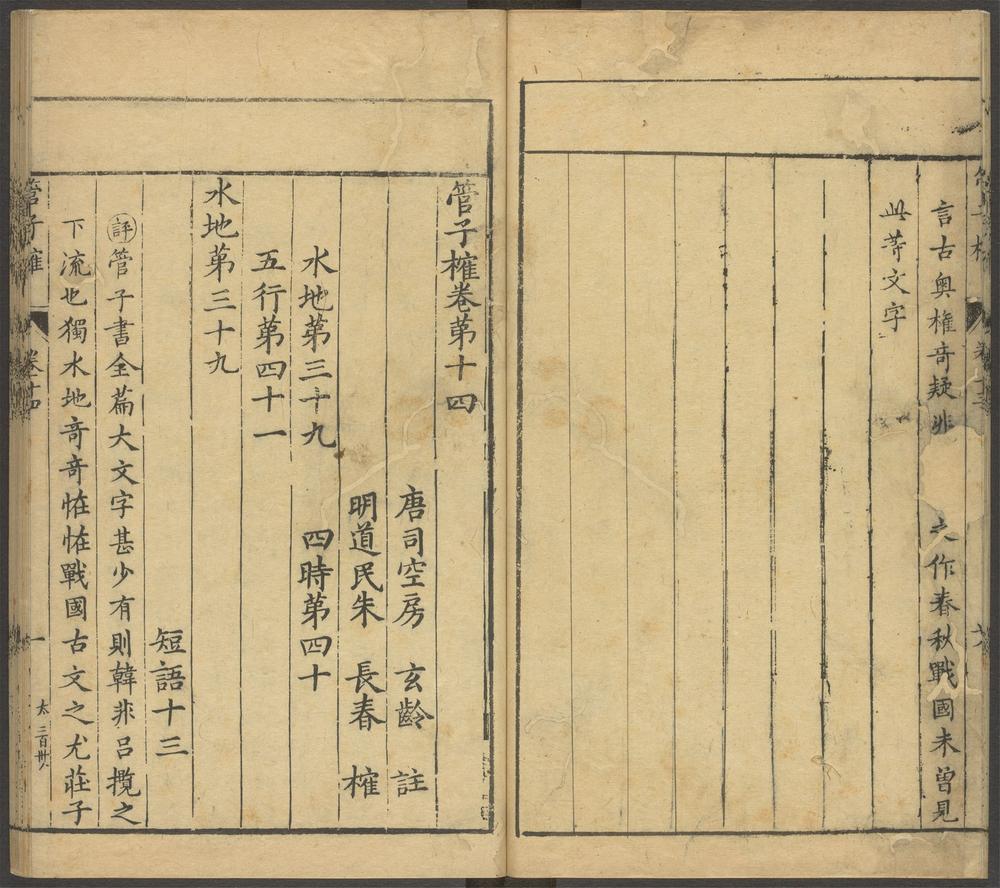 言古奥權竒疑非之作春秋戰國未曽見
此䓁文字
管子榷卷第十四
唐司空房玄齡註
明道民朱長春榷
水地第三十九 四時第四十
五行第四十一
水地第三十九
短語十三
評管子書全篇大文字甚少有則韓非呂攬之
下流也獨水地竒竒恠恠戰國古文之尤莊子
管子榷 卷十四 一 太三百卅